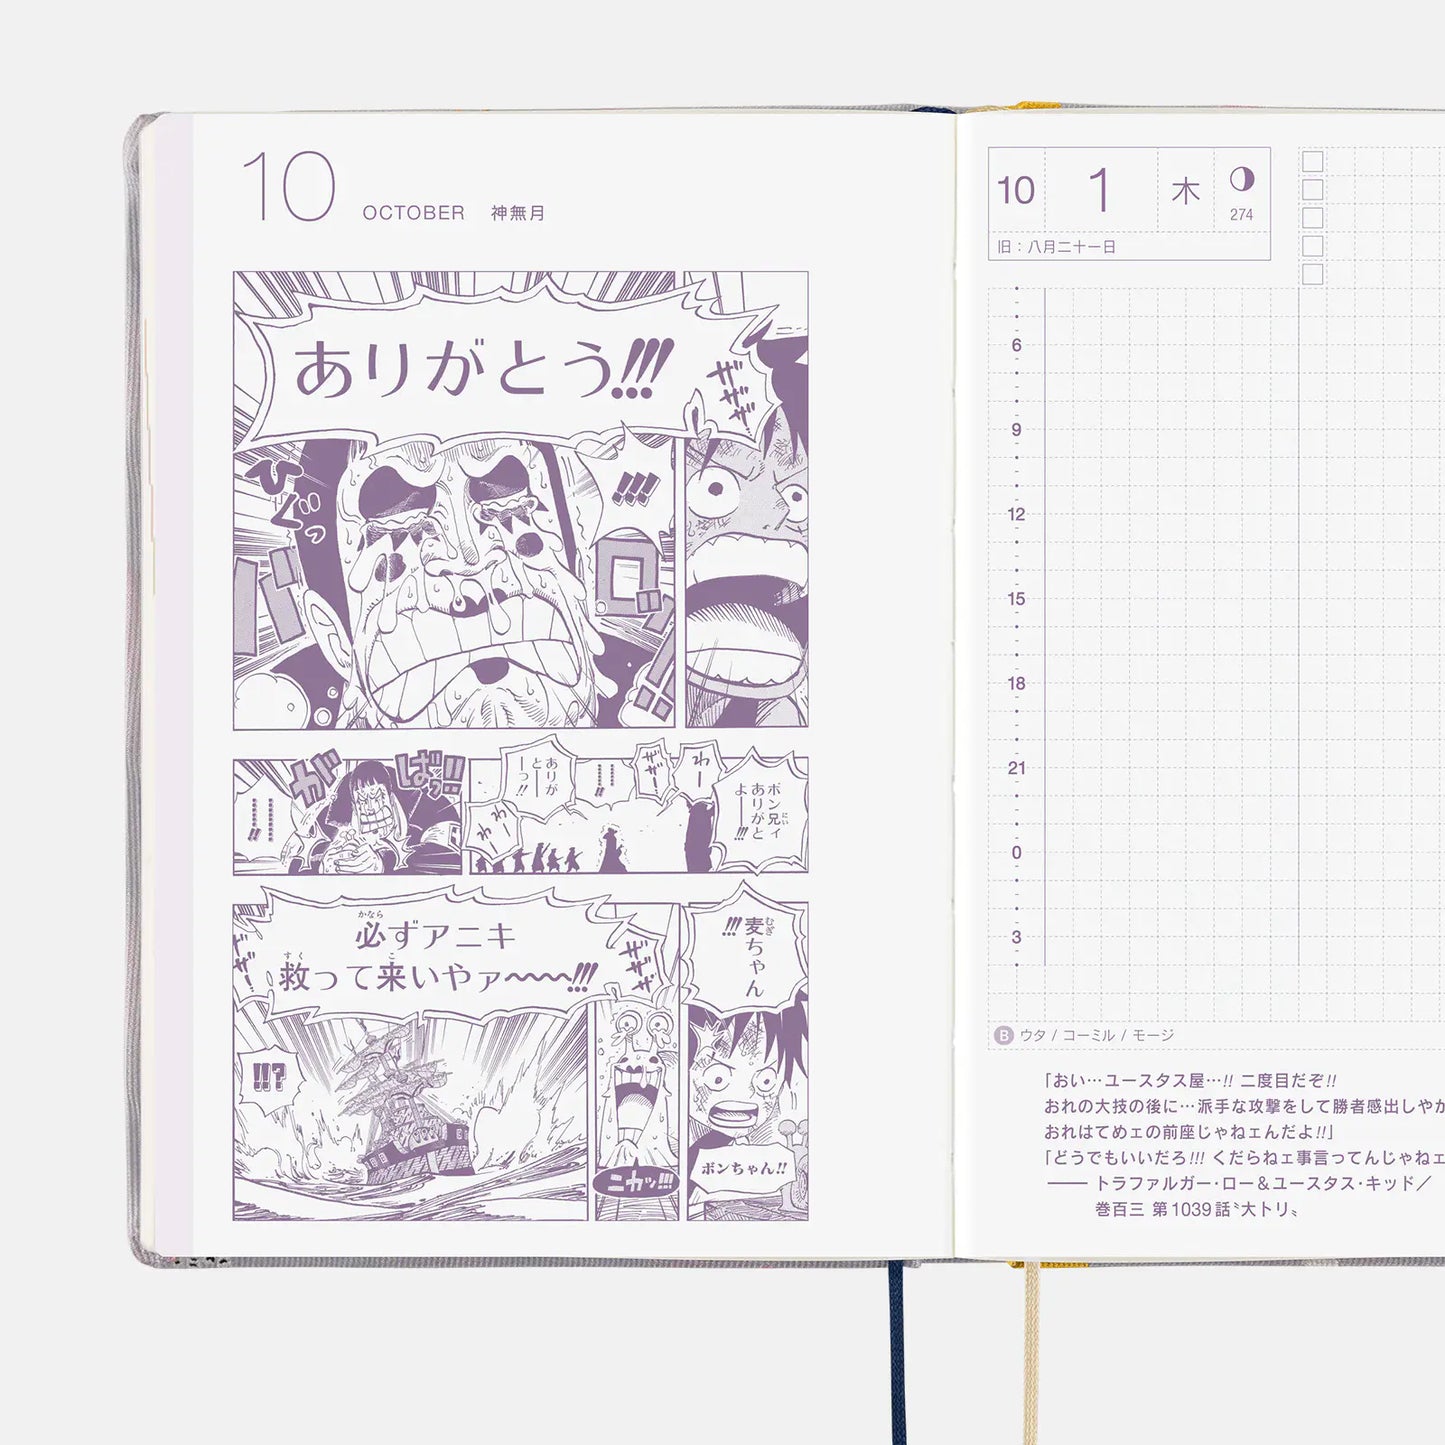 10 OCTOBER 神無月
ありがとう!!!
ザザザ
ひぐっ
!!!
バロ!!
が
ばっ!!
…………!!
ありがとーーっ!!
……!!
ザザー
わー
わわー
ボン兄ィありがとよーー!!!
必ずアニキ
かなら
救って来いやァ〜〜〜!!!
すく
こ
ザザー
ザザザ
!!?
麦ちゃん!!!
むぎ
ニカッ!!!
ボンちゃん!!
10 1 木
274
旧：八月二十一日
6
9
12
15
18
21
0
3
B ウタ / コーミル / モージ
「おい…ユースタス屋…!! 二度目だぞ!!
おれの大技の後に…派手な攻撃をして勝者感出しやが
おれはてめェの前座じゃねェんだよ!!」
「どうでもいいだろ!!! くだらねェ事言ってんじゃねェ
―― トラファルガー・ロー＆ユースタス・キッド／
巻百三 第1039話〝大トリ〟